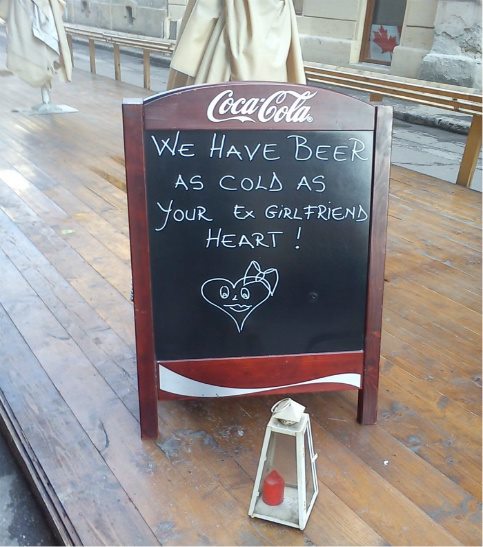 Coca-Cola
WE HAVE BEER
AS COLD AS
YOUR EX GIRLFRIEND
HEART !